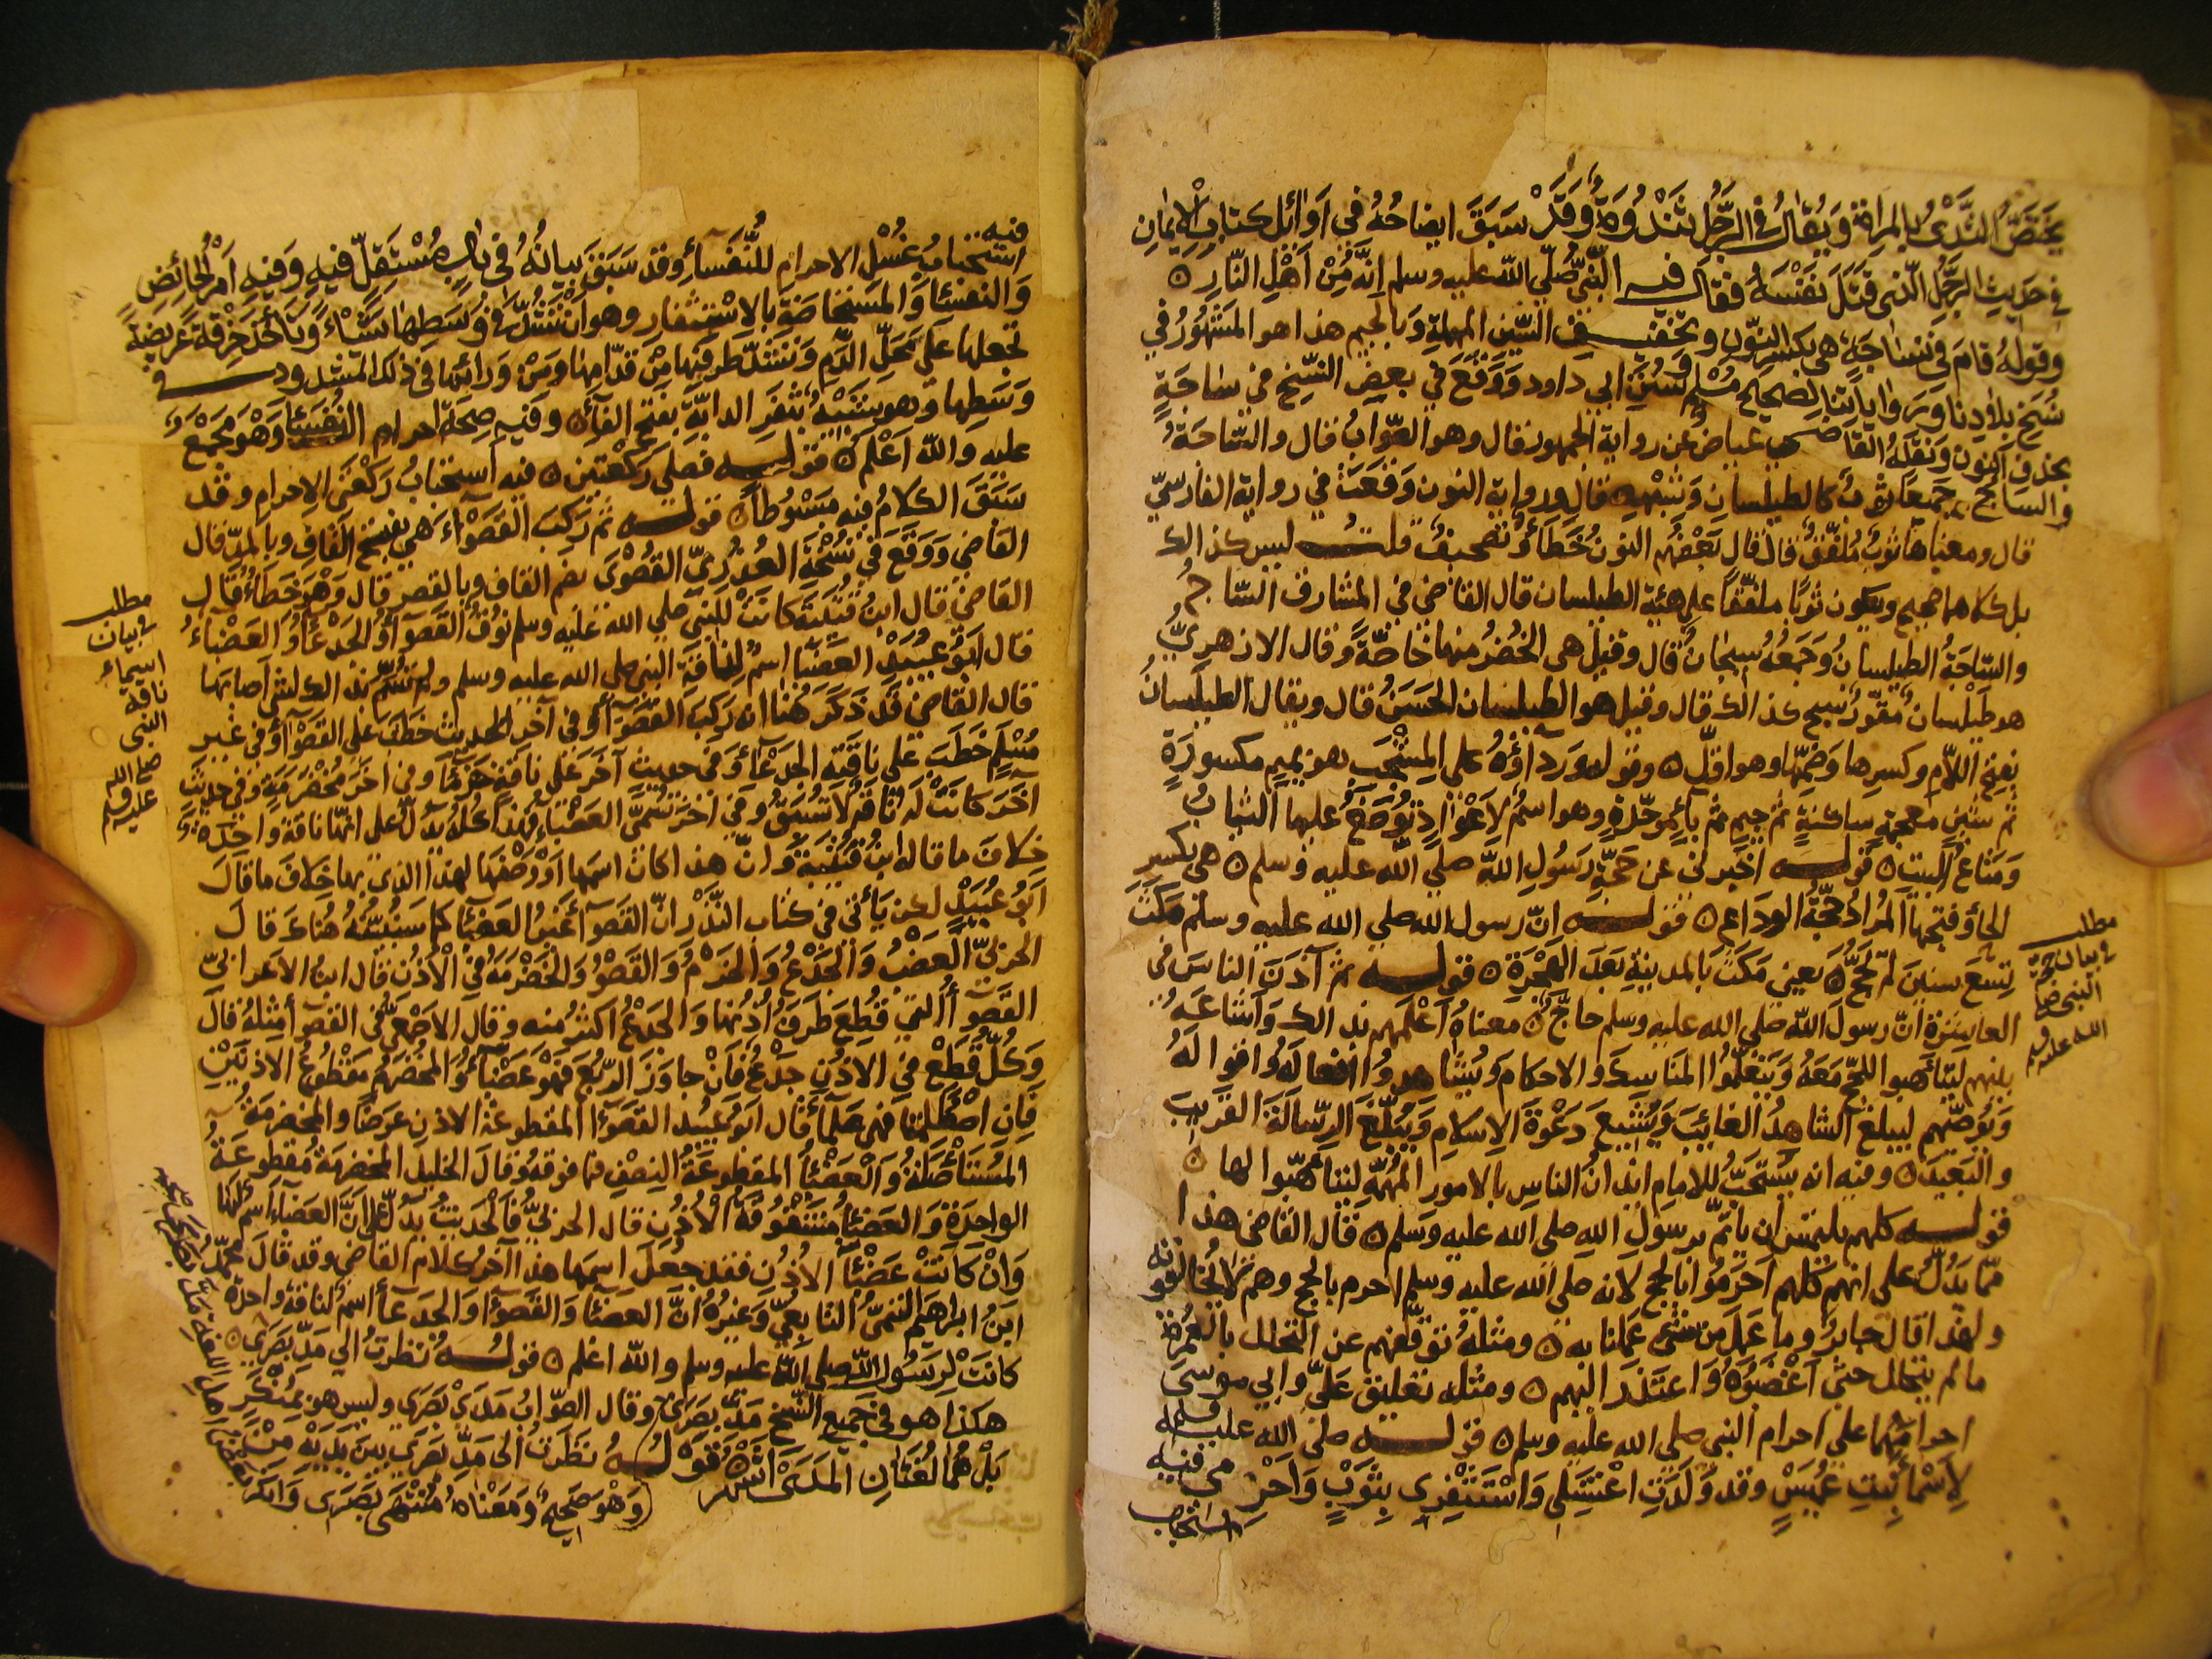 يختص الثدي بالمراة ويقال في الرجل ثندوة وقد سبق ايضاحه في اوائل كتاب الايمان
في حديث الرجل الذي قتل نفسه فقال فيه النبي صلى الله عليه وسلم انه من اهل النار
وقوله قام في نساجة هي بكسر النون وتخفيف السين المهملة وبالجيم هذا هو المشهور في
نسخ بلادنا ورواياتنا لصحيح مسلم وسنن ابي داود ووقع في بعض النسخ في ساجة
بحذف النون ونقله القاضي عياض عن رواية الجمهور قال وهو الصواب قال والساجة
والساج جميعا ثوب كالطيلسان وشبهه قال ورواية النون وقعت في رواية الفارسي
قال ومعناها ثوب ملفق قال قال بعضهم النون خطأ وتصحيف قلت ليس كذالك
بل كلاهما صحيح ويكون ثوبا ملفقا على هيئة الطيلسان قال القاضي في المشارق الساج
والساجة الطيلسان وجمعه سيجان قال وقيل هي الخضر منها خاصة وقال الازهري
هو طيلسان مقور نسج كذالك قال وقيل هو الطيلسان الحسن قال ويقال الطيلسان
بفتح اللام وكسرها وضمها وهو اقل وقوله ورداؤه على المشجب هو بميم مكسورة
ثم شين معجمة ساكنة ثم جيم ثم باء موحدة وهو اسم لاعواد توضع عليها الثياب
ومتاع البيت قوله اخبرني عن حجة رسول الله صلى الله عليه وسلم هي بكسر
الحاء وفتحها المراد حجة الوداع قوله ان رسول الله صلى الله عليه وسلم مكث
تسع سنين لم يحج يعني مكث بالمدينة بعد الهجرة قوله ثم آذن الناس في
العاشرة ان رسول الله صلى الله عليه وسلم حاج معناه اعلمهم بذالك واشاعه
بينهم ليتأهبوا للحج معه ويتعلموا المناسك والاحكام ويشاهدوا افعاله واقواله
ويوصيهم ليبلغ الشاهد الغائب ويشيع دعوة الاسلام ويبلغ الرسالة القريب
والبعيد وفيه انه يستحب للامام ايذان الناس بالامور المهمة ليتأهبوا لها
قوله كلهم يلتمس ان يأتم برسول الله صلى الله عليه وسلم قال القاضي هذا
مما يدل على انهم كلهم احرموا بالحج لانه صلى الله عليه وسلم احرم بالحج وهم لا يخالفونه
ولهذا قال جابر وما عمل من شئ عملنا به ومثله توقفهم عن التحلل بالعمرة
ما لم يتحلل حتى اغضبوه واعتذر اليهم ومثله تعليق علي وابي موسى
احرامهما على احرام النبي صلى الله عليه وسلم قوله صلى الله عليه وسلم
لاسماء بنت عميس وقد ولدت اغتسلي واستثفري بثوب واحرمي فيه
استحباب
مطلب
في بيان حجة
النبي صلى
الله عليه وسلم
فيه
استحباب غسل الاحرام للنفساء وقد سبق بيانه في باب مستقل فيه وفيه امر الحائض
والنفساء والمستحاضة بالاستثفار وهو ان تشد في وسطها شيئا وتاخذ خرقة عريضة
تجعلها على محل الدم وتشد طرفيها من قدامها ومن ورائها في ذلك المشدود في
وسطها وهو شبيه بثفر الدابة بفتح الفاء وفيه صحة احرام النفساء وهو مجمع
عليه والله اعلم قوله فصلى ركعتين فيه استحباب ركعتي الاحرام وقد
سبق الكلام فيه مبسوطا قوله ثم ركب القصواء هي بفتح القاف وبالمد قال
القاضي ووقع في نسخة العذري القصوى بضم القاف وبالقصر قال وهو خطأ قال
القاضي قال ابن قتيبة كانت للنبي صلى الله عليه وسلم نوق القصواء والجدعاء والعضباء
قال ابو عبيد العضباء اسم لناقة النبي صلى الله عليه وسلم ولم تسم بذالك لشئ اصابها
قال القاضي قد ذكر هنا انه ركب القصواء وفي آخر الحديث خطب على القصواء وفي غير
مسلم خطب على ناقته الجدعاء وفي حديث آخر على ناقة خرماء وفي آخر مخضرمة وفي حديث
آخر كانت له ناقة لا تسبق وفي آخر تسمى العضباء وهذا كله يدل على انها ناقة واحدة
خلاف ما قاله ابن قتيبة وان هذا كان اسمها او وصفها لهذا الذي بها خلاف ما قال
ابو عبيد لكن يأتي في كتاب النذر ان القصواء غير العضباء كما سنبينه هناك قال
الحربي العضب والجدع والخرم والقصو والخضرمة في الاذن قال ابن الاعرابي
القصواء التي قطع طرف اذنها والجدع اكثر منه وقال الاصمعي في القصو مثله قال
وكل قطع في الاذن جدع فان جاوز الربع فهو عضباء والمخضرم مقطوع الاذنين
فان اصطلمتا فهي صلماء قال ابو عبيد القصواء المقطوعة الاذن عرضا والمخضرمة
المستأصلة والعضباء المقطوعة النصف فما فوقه وقال الخليل المخضرمة مقطوعة
الواحدة والعضباء مشقوقة الاذن قال الحربي فالحديث يدل على ان العضباء اسم لها
وان كانت عضباء الاذن فقد جعل اسمها هذا آخر كلام القاضي وقد قال محمد
ابن ابراهيم التيمي التابعي وغيره ان العضباء والقصواء والجدعاء اسم لناقة واحدة
كانت لرسول الله صلى الله عليه وسلم والله اعلم قوله نظرت الى مد بصري
هكذا هو في جميع النسخ مد بصري وقال الصواب مدى بصري وليس هو بمنكر
بل هما لغتان المدى اشهر قوله نظرت الى مد بصري بين يديه من
وهو صحيح ومعناه منتهى بصري وانكر بعض اهل اللغة مد بصري
مطلب
في بيان
اسماء
ناقة
النبي
صلى الله
عليه وسلم